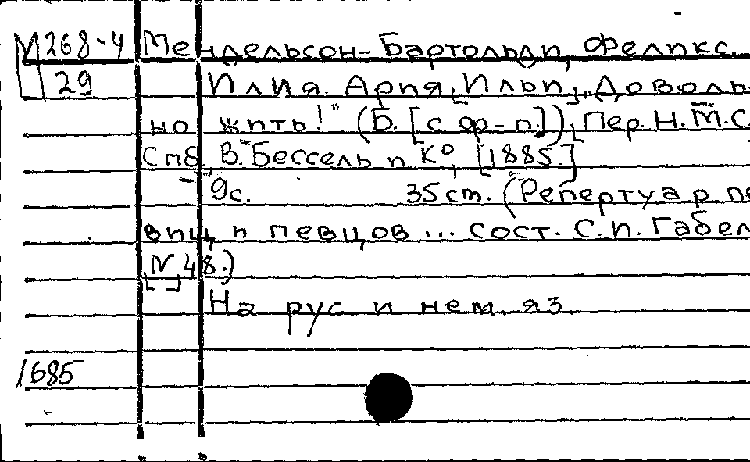 М268-4 Мендельсон-Бартольди, Феликс.
29 Илия. Ария [Ильи] „Доволь
но жить!" (Б. [с ф-п]), Пер. Н.М.С
Спб, В. Бессель и К°, [1885.]
9с. 35см. (Репертуар пе
виц и певцов... сост. С.И. Габел
[N 48.)
На рус и нем. яз.
1685